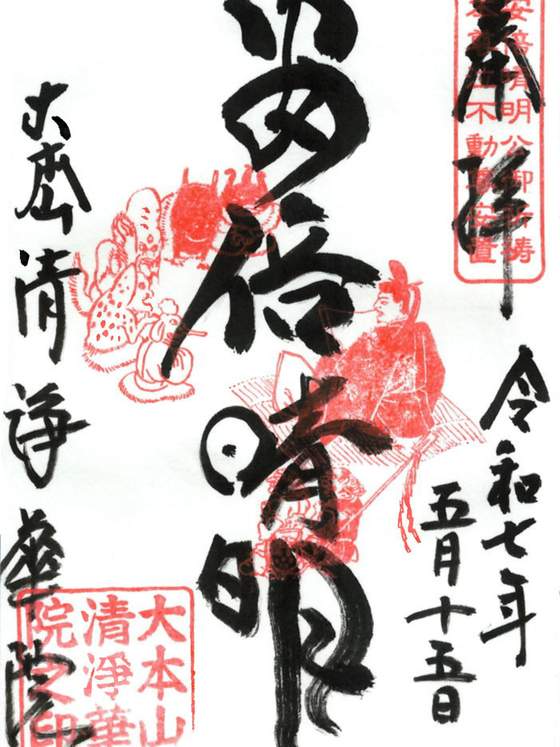 奉拝
安倍晴明公御祈祷
不動尊安置
令和七年
五月十五日
安倍晴明
大本山清浄華院
大本山
清浄華
院之印